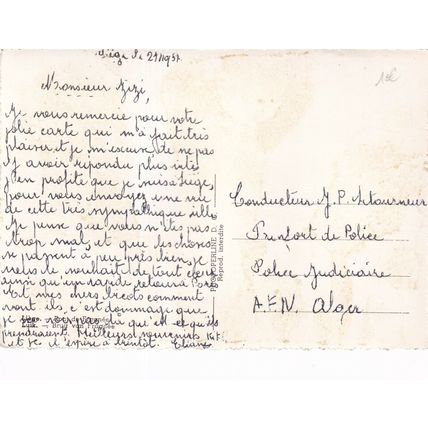 Liège le 21/1/195
Monsieur Zizi,
Je vous remercie pour votre
jolie carte qui m'a fait très
plaisir et je m'excuse de ne pas
y avoir répondu plus
J'en profite que je suis à Liège,
pour vous envoyez une vue
de cette très sympathique ville
Je pense que vous n'êtes pas
trop mal, et que les choses
se passent à peu près bien, je
vous le souhait de tout cœur
ainsi qu'un rapide retour à
Et mes chers comment
vont ils, c'est dommage que
je ne vois pas qui et ce qu'ils
prendraient. Meilleurs souvenirs
et je espère à bientôt. Eliane
Conducteur J.P.
de Police
Police Judiciaire
A.F.N. Alger
Reprod. interdite